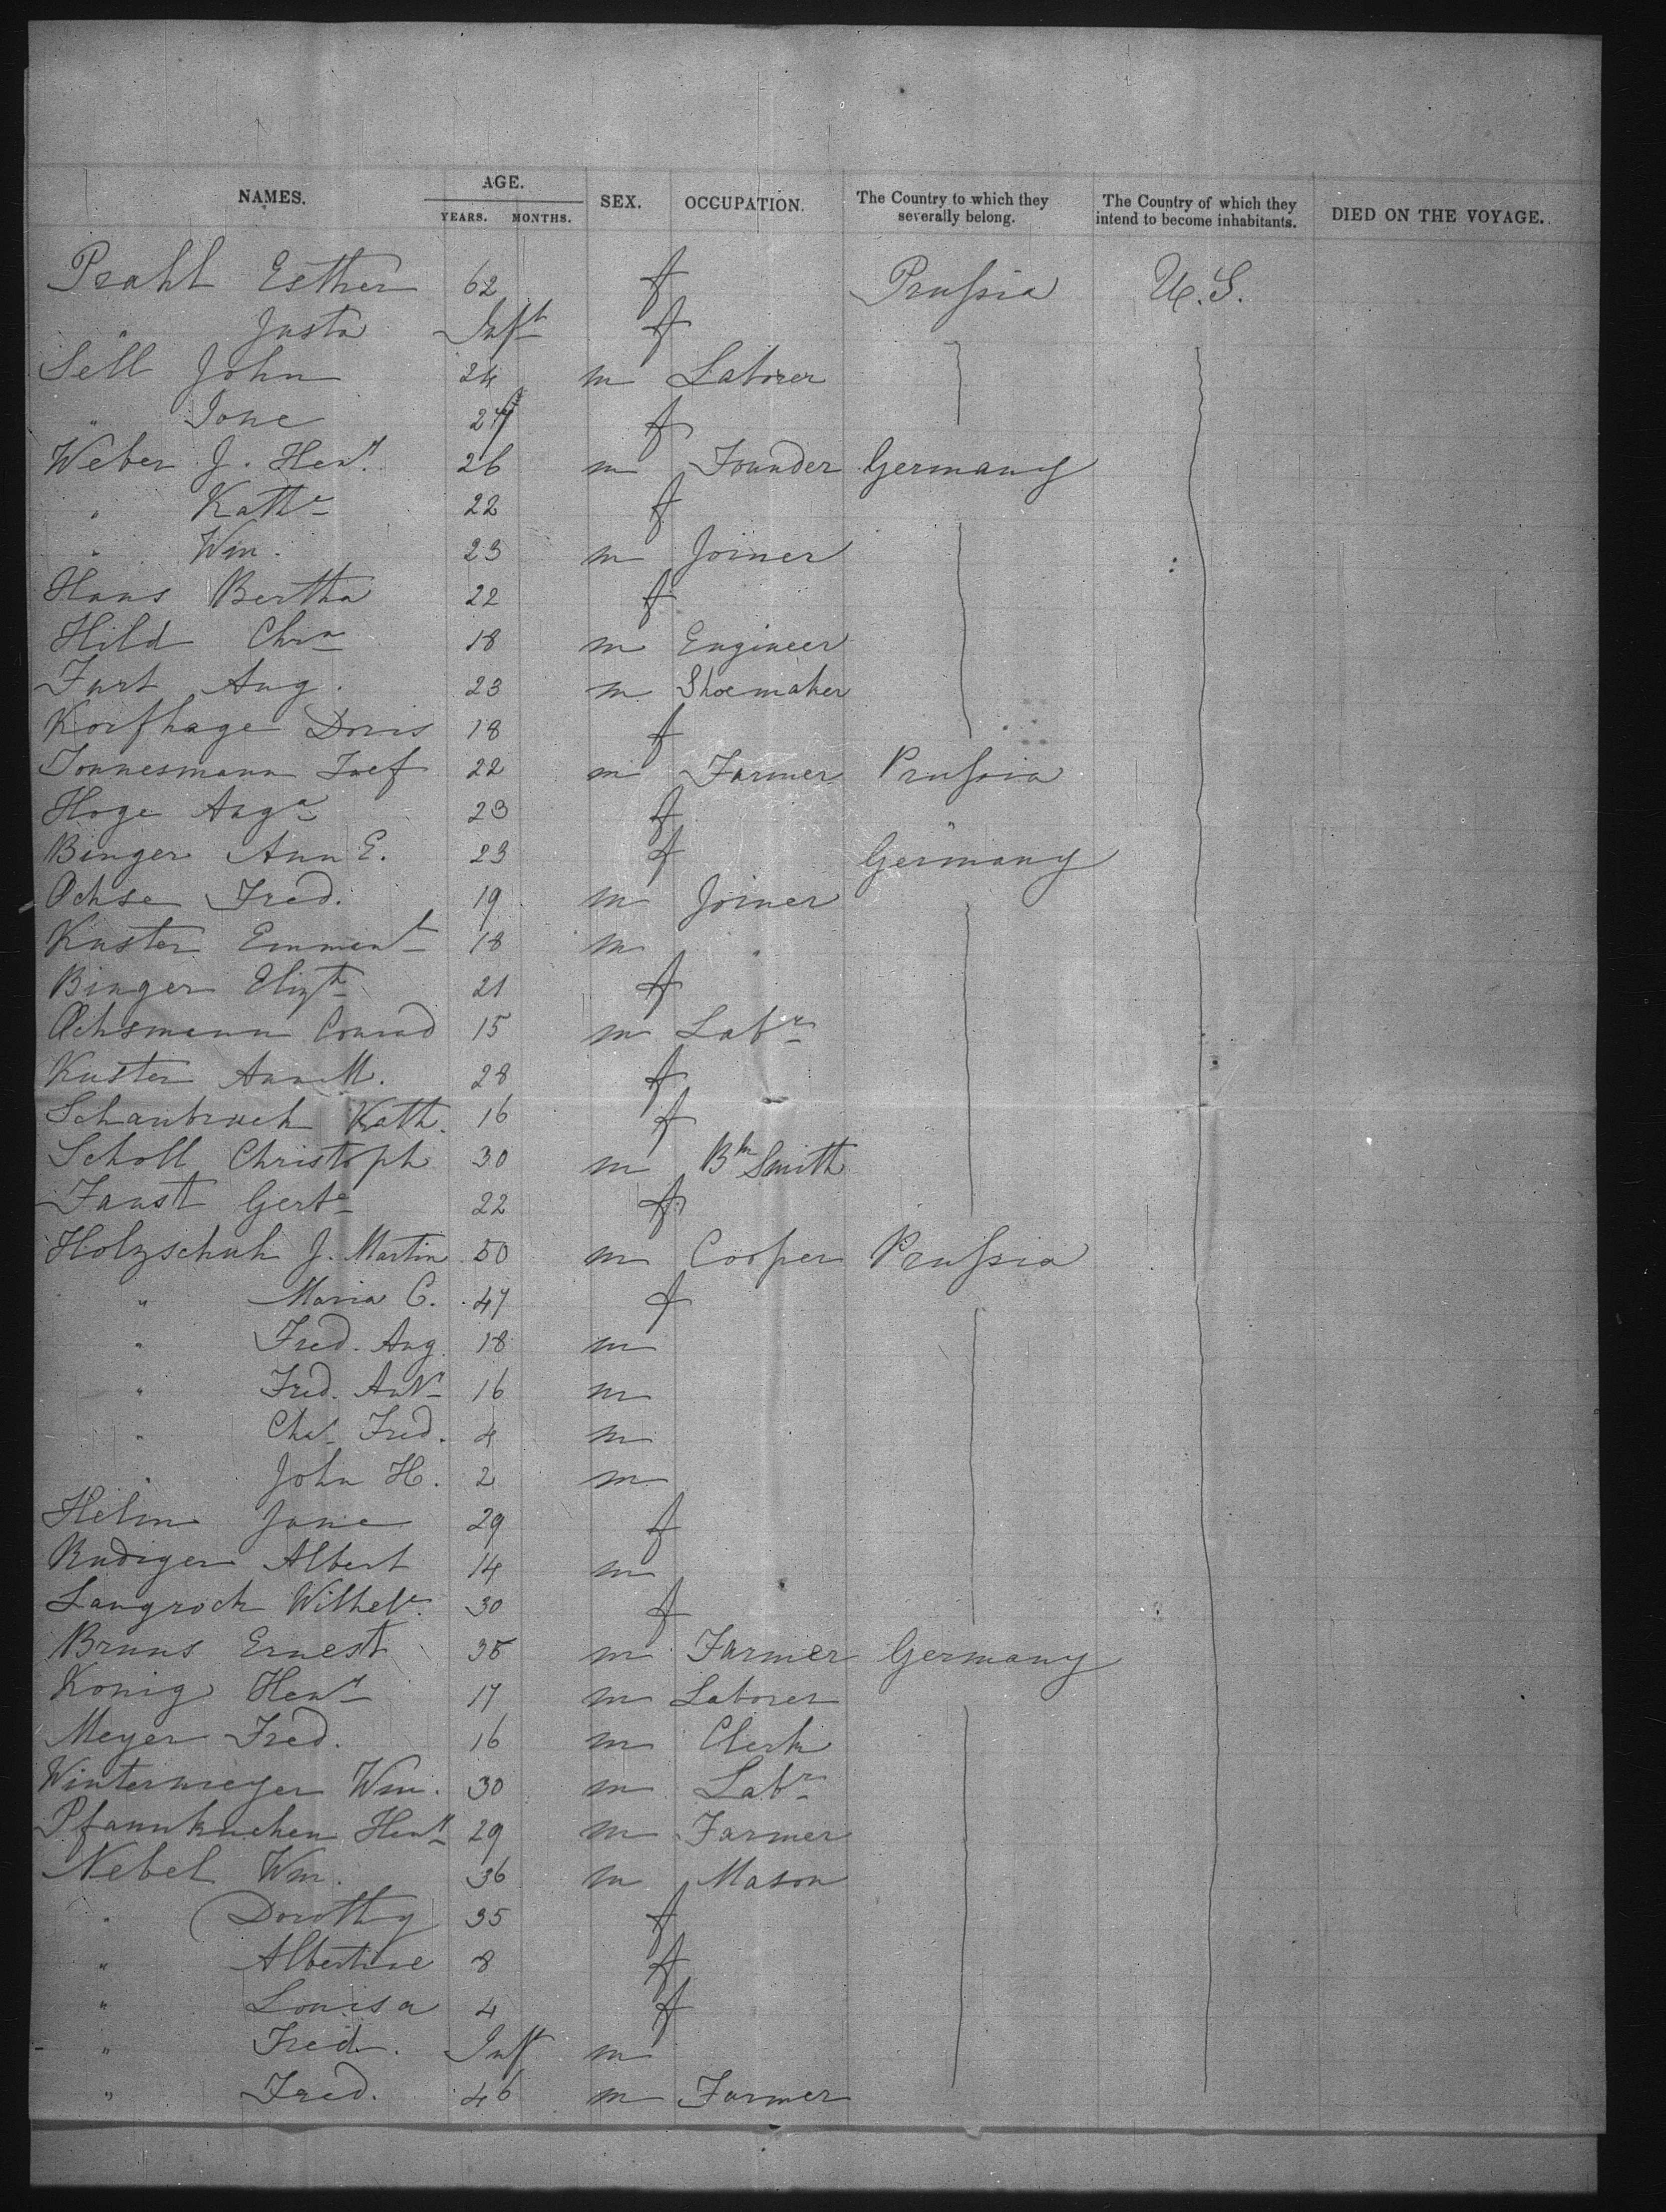 NAMES. AGE. SEX. OCCUPATION. The Country to which they severally belong. The Country of which they intend to become inhabitants. DIED ON THE VOYAGE.
YEARS. MONTHS.
Prahl Esther 62 f Prussia U.S.
" Justa Inft f
Sell John 24 m Laborer
" Jane 27 f
Weber J. Heny. 26 m Founder Germany
" Kathe 22 f
" Wm. 23 m Joiner
Hans Bertha 22 f
Hild Chrn 18 m Engineer
Furt Aug. 23 m Shoemaker
Korfhage Doris 18 f
Tonnesmann Josef 22 m Farmer Prussia
Hoge Auga 23 f "
Binger Ann E. 23 f Germany
Ochse Fred. 19 m Joiner
Kuster Emment 18 m "
Binger Elizth 21 f
Ochsmann Conrad 15 m Labr
Kuster Ann M. 28 f
Schanbruch Kath. 16 f
Scholl Christoph 30 m Bk Smith
Faust Gerte 22 f
Holzschuh J. Martin 50 m Cooper Prussia
" Maria C. 47 f
" Fred. Aug. 18 m
" Fred. 16 m
" Chas Fred. 4 m
" John H. 2 m
Helm Jane 29 f
Rudiger Albert 14 m
Langrock Wilhele. 30 f
Bruns Ernest 35 m Farmer Germany
Konig Heny 17 m Laborer
Meyer Fred. 16 m Clerk
Wintermeyer Wm. 30 m Labr
Pfannkuchen Heny 29 m Farmer
Nebel Wm. 36 m Mason
" Dorothy 35 f
" Albertine 8 f
" Louisa 4 f
" Fred. Inft m
" Fred. 46 m Farmer